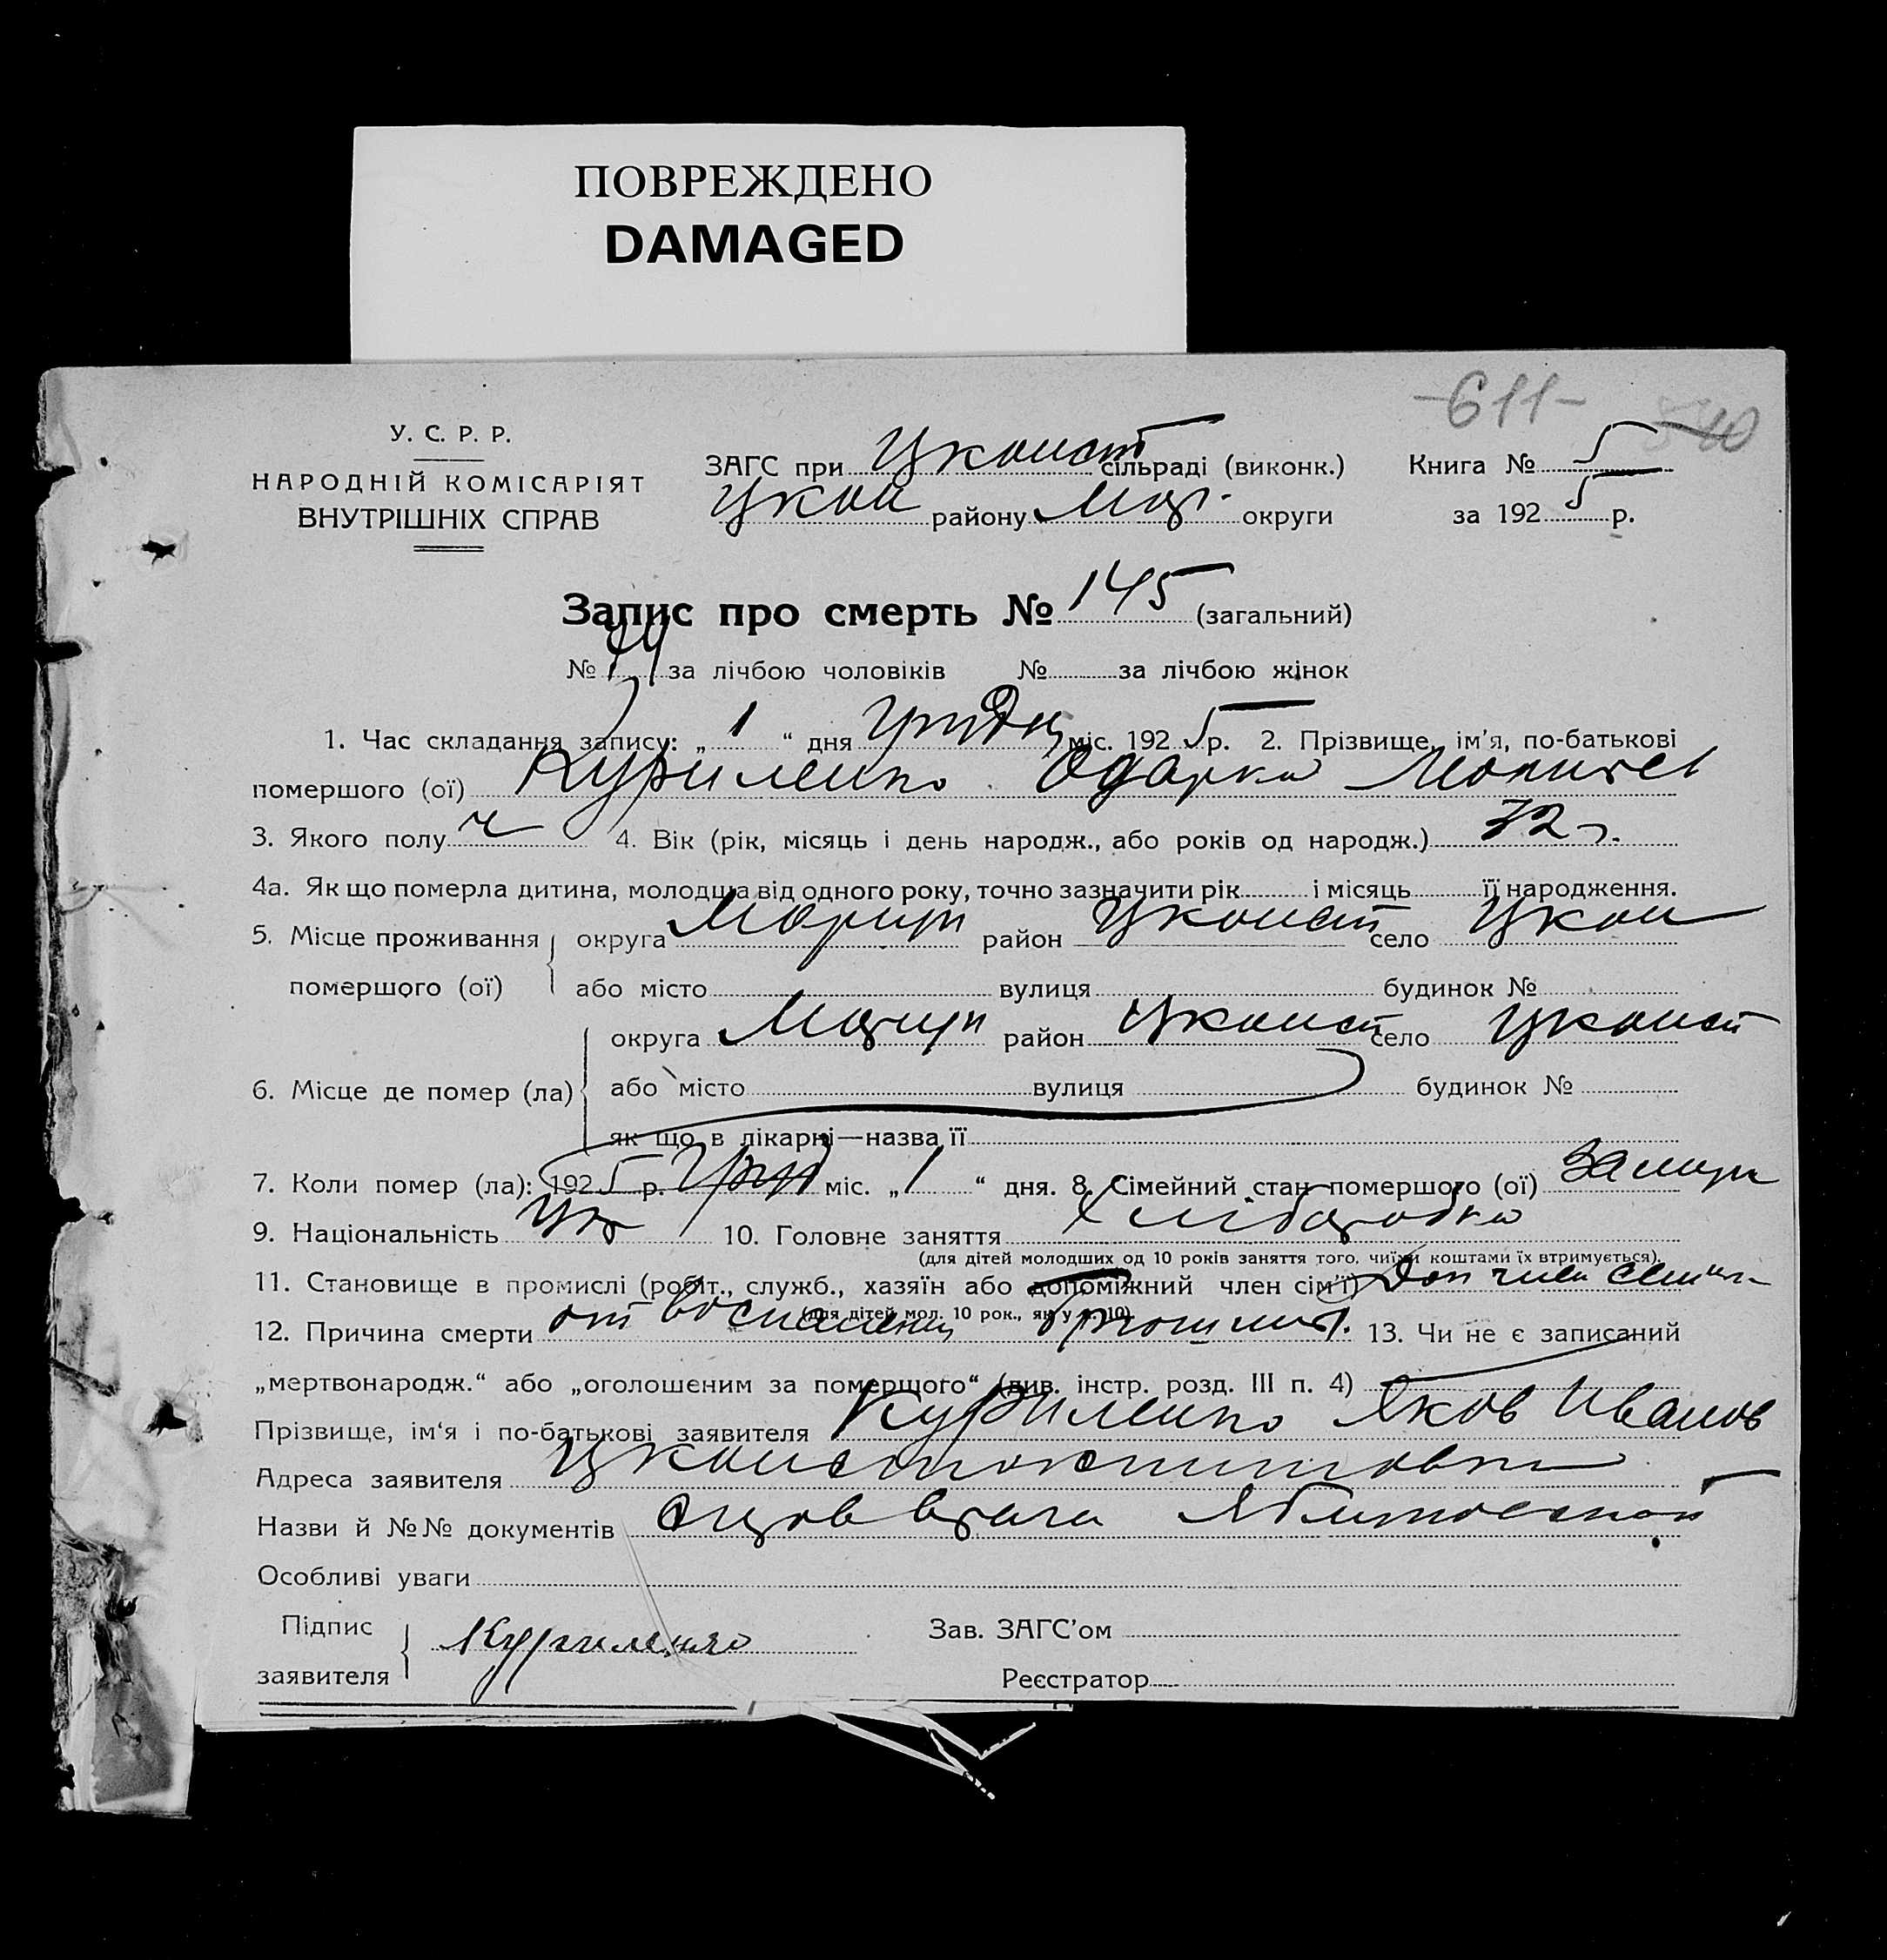 ПОВРЕЖДЕНО
DAMAGED
-611-
У. С. Р. Р.
НАРОДНІЙ КОМІСАРІЯТ
ВНУТРІШНІХ СПРАВ
ЗАГС при Цконст сільраді (виконк.) Книга № 5
Цкон району Мар. округи за 1925 р.
Запис про смерть № 145 (загальний)
№ 74 за лічбою чоловіків № за лічбою жінок
1. Час складання запису: „ 1 “ дня Грудн міс. 1925 р. 2. Прізвище, ім'я, по-батькові
помершого (ої) Куриленко Одарка
3. Якого полу ч 4. Вік (рік, місяць і день народж., або років од народж.) 72 г.
4а. Як що померла дитина, молодша від одного року, точно зазначити рік і місяць її народження.
5. Місце проживання округа Мариуп район Цконст село Цкон
помершого (ої) або місто вулиця будинок №
округа Мариуп район Цконст село Цконст
6. Місце де помер (ла) або місто вулиця будинок №
як що в лікарні—назва її
7. Коли помер (ла): 1925 р. Груд міс. „ 1 “ дня. 8. Сімейний стан помершого (ої) замуж
9. Національність Укр 10. Головне заняття Хлібаробка
(для дітей молодших од 10 років заняття того, чиїми коштами їх втримується).
11. Становище в промислі (робіт., служб., хазяїн або допоміжний член сім'ї) Доп член семьи
(для дітей мол. 10 рок., як у п. 10).
12. Причина смерти от воспаления брюшины. 13. Чи не є записаний
„мертвонародж.“ або „оголошеним за померщого“ (див. інстр. розд. III п. 4)
Прізвище, ім‘я і по-батькові заявителя Куриленко Яков Иванов
Адреса заявителя Цконстантиновка
Назви й №№ документів врача
Особливі уваги
Підпис
заявителя Куриленко Зав. ЗАГС'ом
Реєстратор